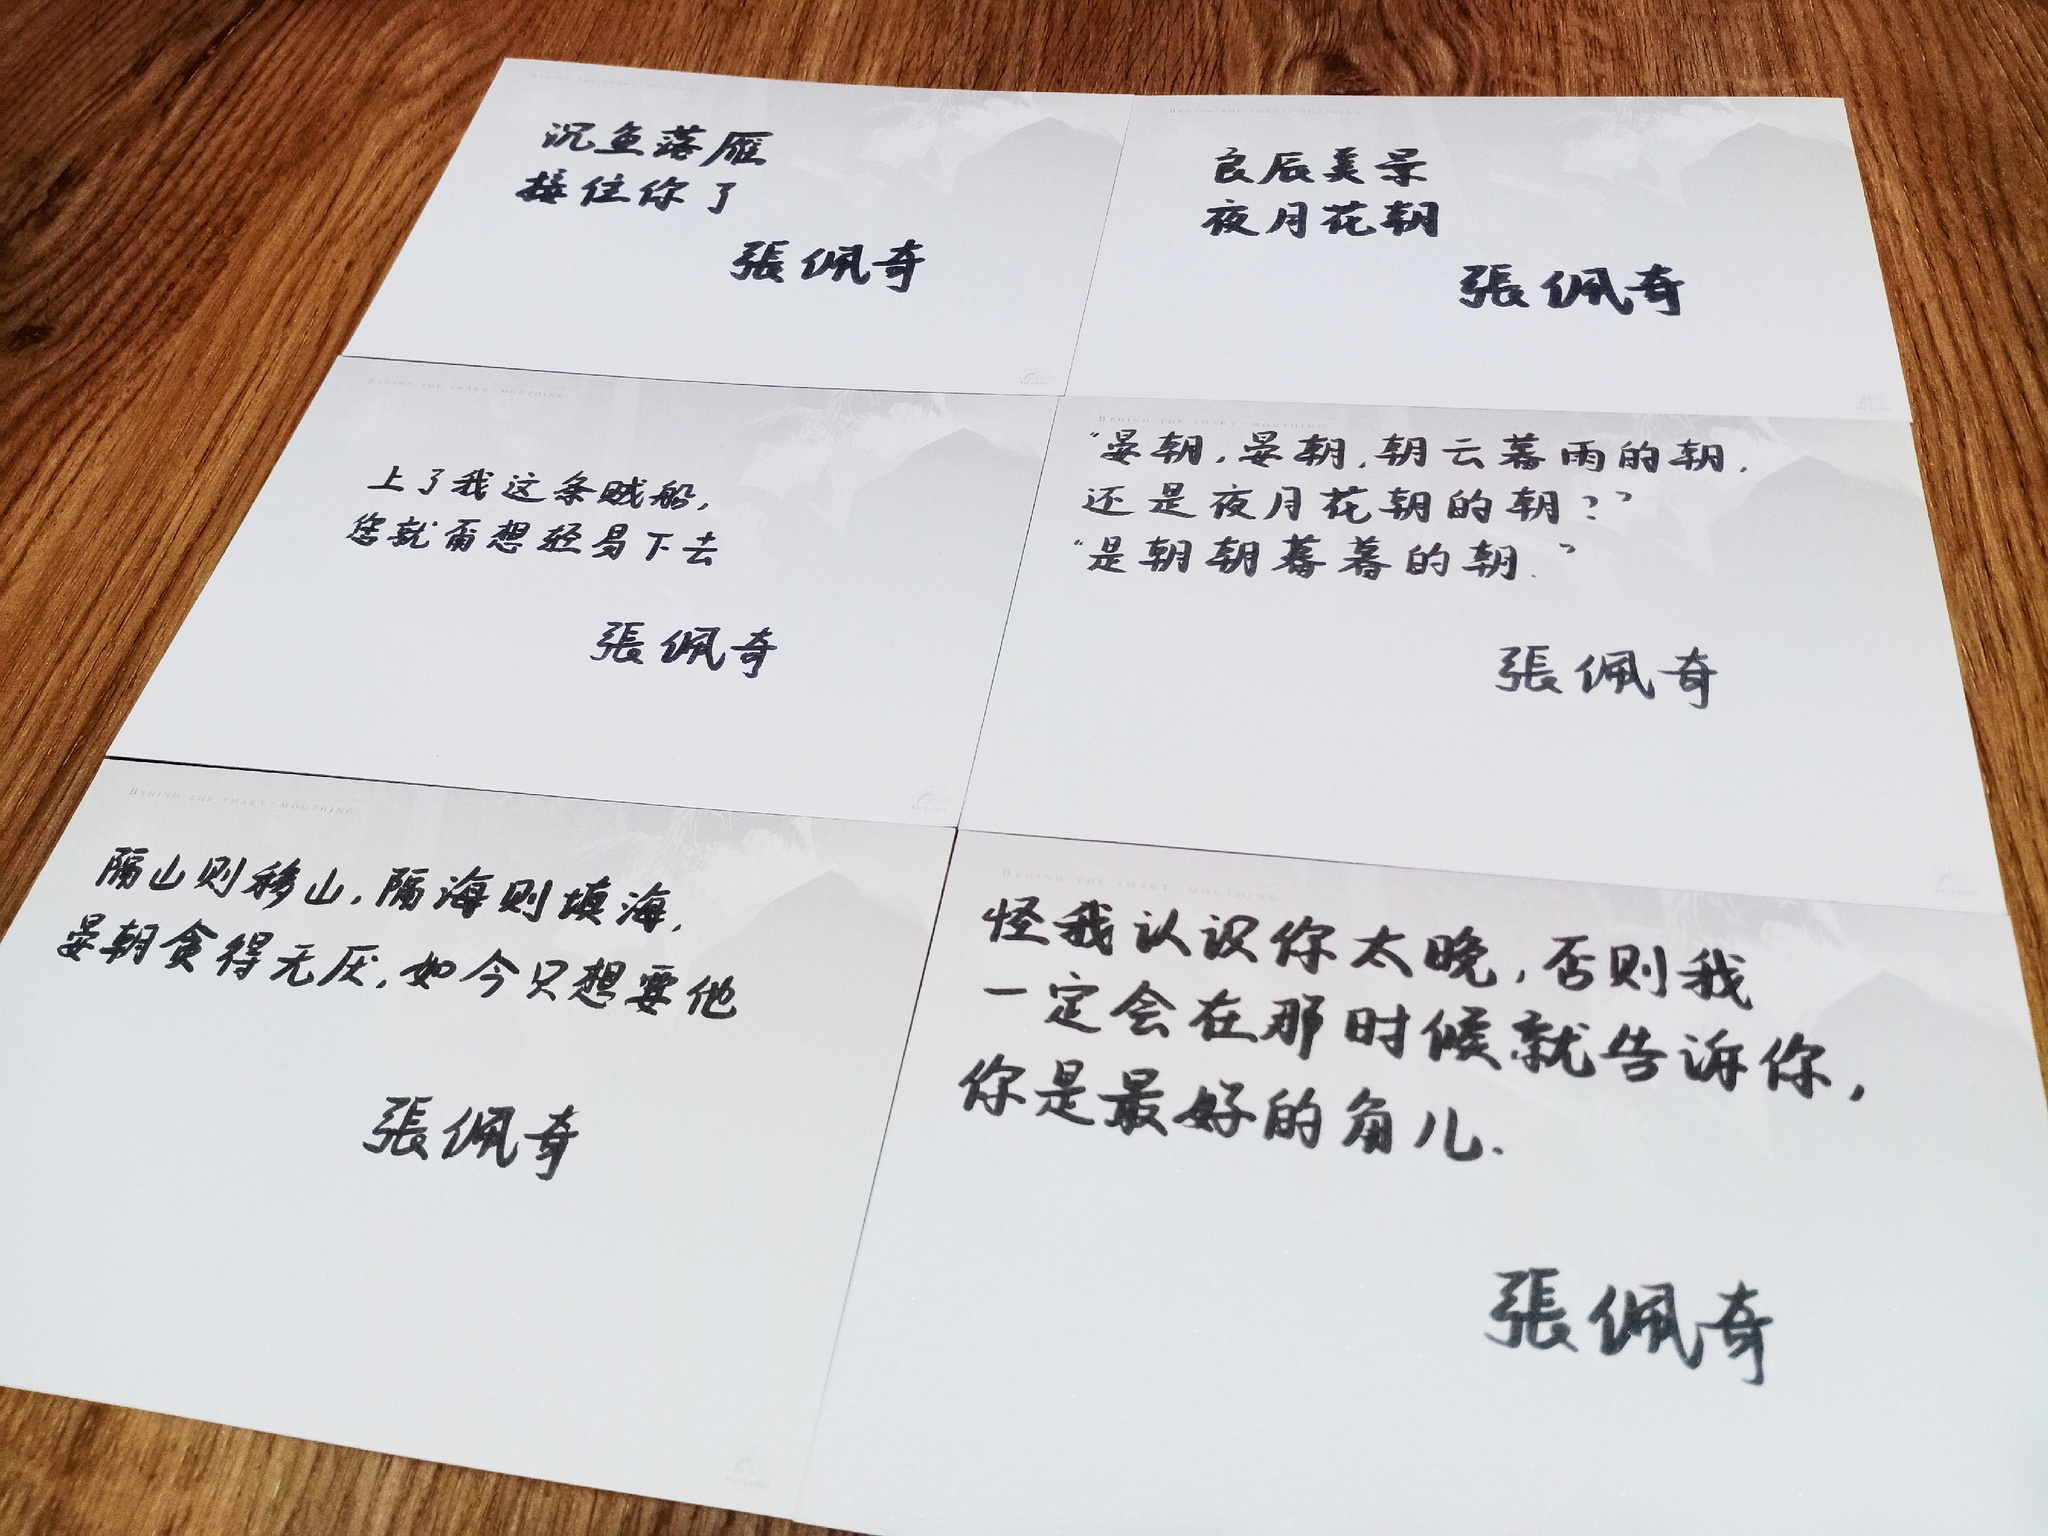 沉鱼落雁
接住你了
張佩奇
良辰美景
夜月花朝
張佩奇
BEHIND THE SMART-MOUTHING
上了我这条贼船,
您就甭想轻易下去
張佩奇
BEHIND THE SMART-MOUTHING
“晏朝,晏朝,朝云暮雨的朝,
还是夜月花朝的朝?”
“是朝朝暮暮的朝.”
張佩奇
BEHIND THE SMART-MOUTHING
隔山则移山,隔海则填海,
晏朝贪得无厌,如今只想要他
張佩奇
BEHIND THE SMART-MOUTHING
怪我认识你太晚,否则我
一定会在那时候就告诉你,
你是最好的角儿.
張佩奇